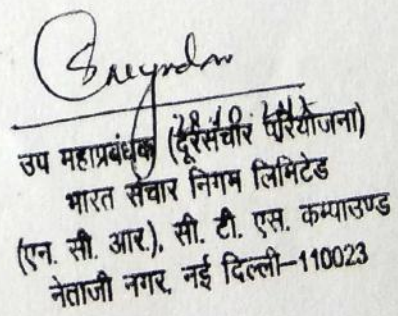 उप महाप्रबंधक (दूरसंचार परियोजना)
भारत संचार निगम लिमिटेड
(एन. सी. आर.), सी. टी. एस. कम्पाउण्ड
नेताजी नगर, नई दिल्ली-110023